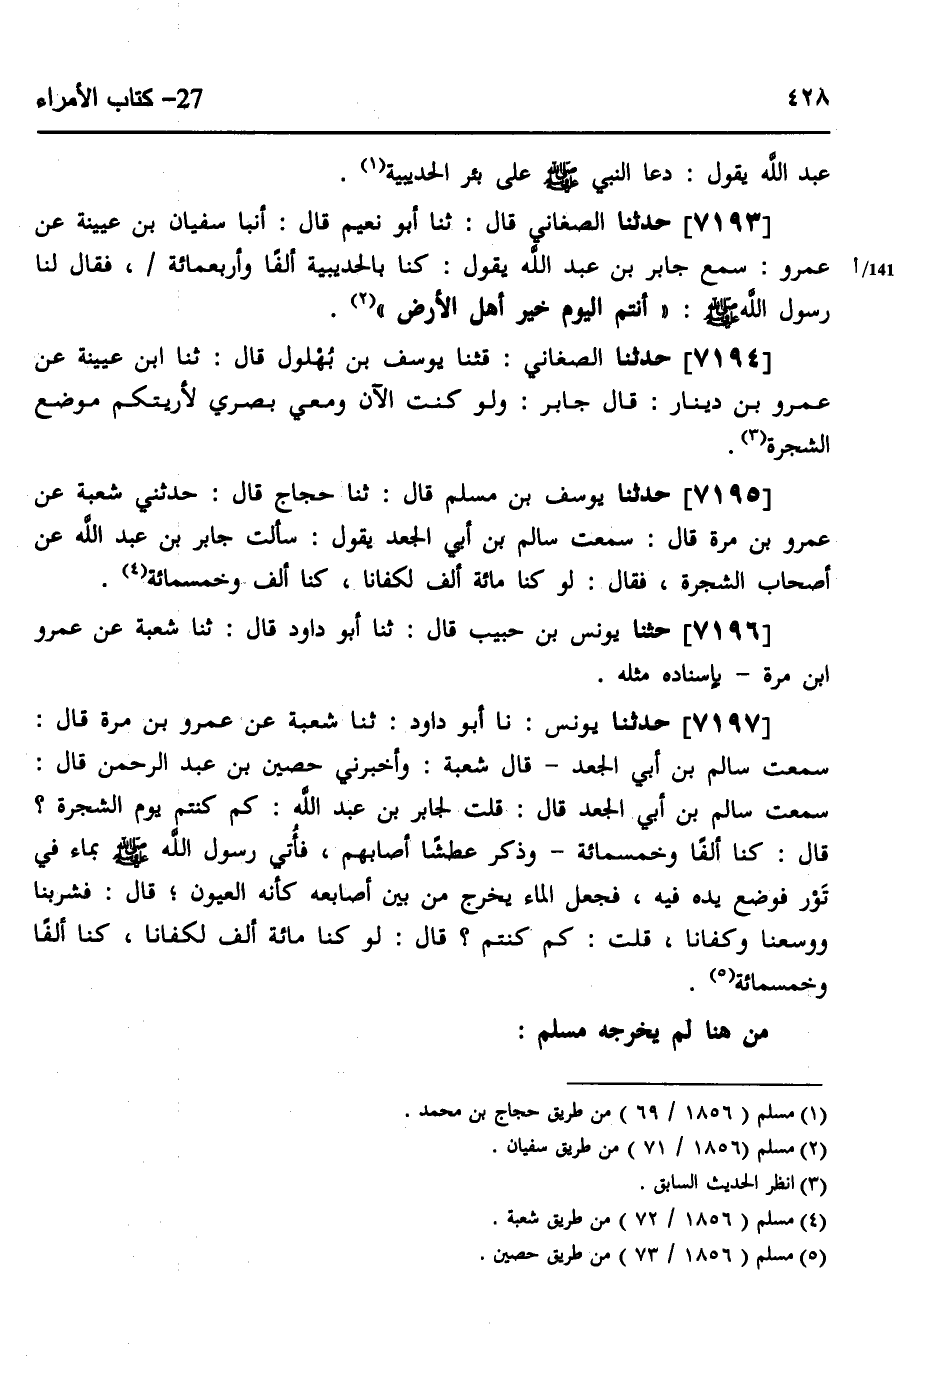 ٤٢٨
27- كتاب الأمراء
عبد اللَّه يقول : دعا النبي ﷺ على بئر الحديبية(١) .
[٧١٩٣] حدثنا الصغاني قال : ثنا أبو نعيم قال : أنبا سفيان بن عيينة عن
عمرو : سمع جابر بن عبد اللَّه يقول : كنا بالحديبية ألفًا وأربعمائة / ، فقال لنا
141/أ
رسول اللَّه ﷺ : « أنتم اليوم خير أهل الأرض »(٢) .
[٧١٩٤] حدثنا الصغاني : قثنا يوسف بن بُهْلول قال : ثنا ابن عيينة عن
عمرو بن دينار : قال جابر : ولو كنت الآن ومعي بصري لأريتكم موضع
الشجرة(٣) .
[٧١٩٥] حدثنا يوسف بن مسلم قال : ثنا حجاج قال : حدثني شعبة عن
عمرو بن مرة قال : سمعت سالم بن أبي الجعد يقول : سألت جابر بن عبد اللَّه عن
أصحاب الشجرة ، فقال : لو كنا مائة ألف لكفانا ، كنا ألف وخمسمائة(٤) .
[٧١٩٦] حثنا يونس بن حبيب قال : ثنا أبو داود قال : ثنا شعبة عن عمرو
ابن مرة – بإسناده مثله .
[٧١٩٧] حدثنا يونس : نا أبو داود : ثنا شعبة عن عمرو بن مرة قال :
سمعت سالم بن أبي الجعد – قال شعبة : وأخبرني حصين بن عبد الرحمن قال :
سمعت سالم بن أبي الجعد قال : قلت لجابر بن عبد اللَّه : كم كنتم يوم الشجرة ؟
قال : كنا ألفًا وخمسمائة – وذكر عطشًا أصابهم ، فأُتي رسول اللَّه ﷺ بماء في
تَوْر فوضع يده فيه ، فجعل الماء يخرج من بين أصابعه كأنه العيون ؛ قال : فشربنا
ووسعنا وكفانا ، قلت : كم كنتم ؟ قال : لو كنا مائة ألف لكفانا ، كنا ألفًا
وخمسمائة(٥) .
من هنا لم يخرجه مسلم :
(١) مسلم ( ١٨٥٦ / ٦٩ ) من طريق حجاج بن محمد .
(٢) مسلم (١٨٥٦ / ٧١ ) من طريق سفيان .
(٣) انظر الحديث السابق .
(٤) مسلم ( ١٨٥٦ / ٧٢ ) من طريق شعبة .
(٥) مسلم ( ١٨٥٦ / ٧٣ ) من طريق حصين .